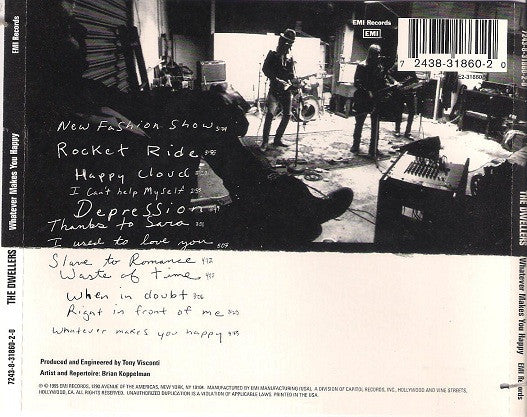 EMI Records
EMI
7 2438-31860-2 0
New Fashion Show
Rocket Ride
Happy Cloud
I Can't help Myself
Depression
Thanks to Sara
I used to love you 5:07
Slave to Romance
Waste of time
When in doubt
Right in front of me
Whatever makes you happy
Produced and Engineered by Tony Visconti
Artist and Repertoire: Brian Koppelman
℗ © 1995 EMI RECORDS, 1290 AVENUE OF THE AMERICAS, NEW YORK, NY 10104. MANUFACTURED BY EMI MANUFACTURING (USA). A DIVISION OF CAPITOL RECORDS, INC., HOLLYWOOD AND VINE STREETS,
HOLLYWOOD, CA. ALL RIGHTS RESERVED. UNAUTHORIZED DUPLICATION IS A VIOLATION OF APPLICABLE LAWS. PRINTED IN THE USA.
7243-8-31860-2-0 THE DWELLERS Whatever Makes You Happy EMI Records
7243-8-31860-2-0 THE DWELLERS Whatever Makes You Happy EMI Records